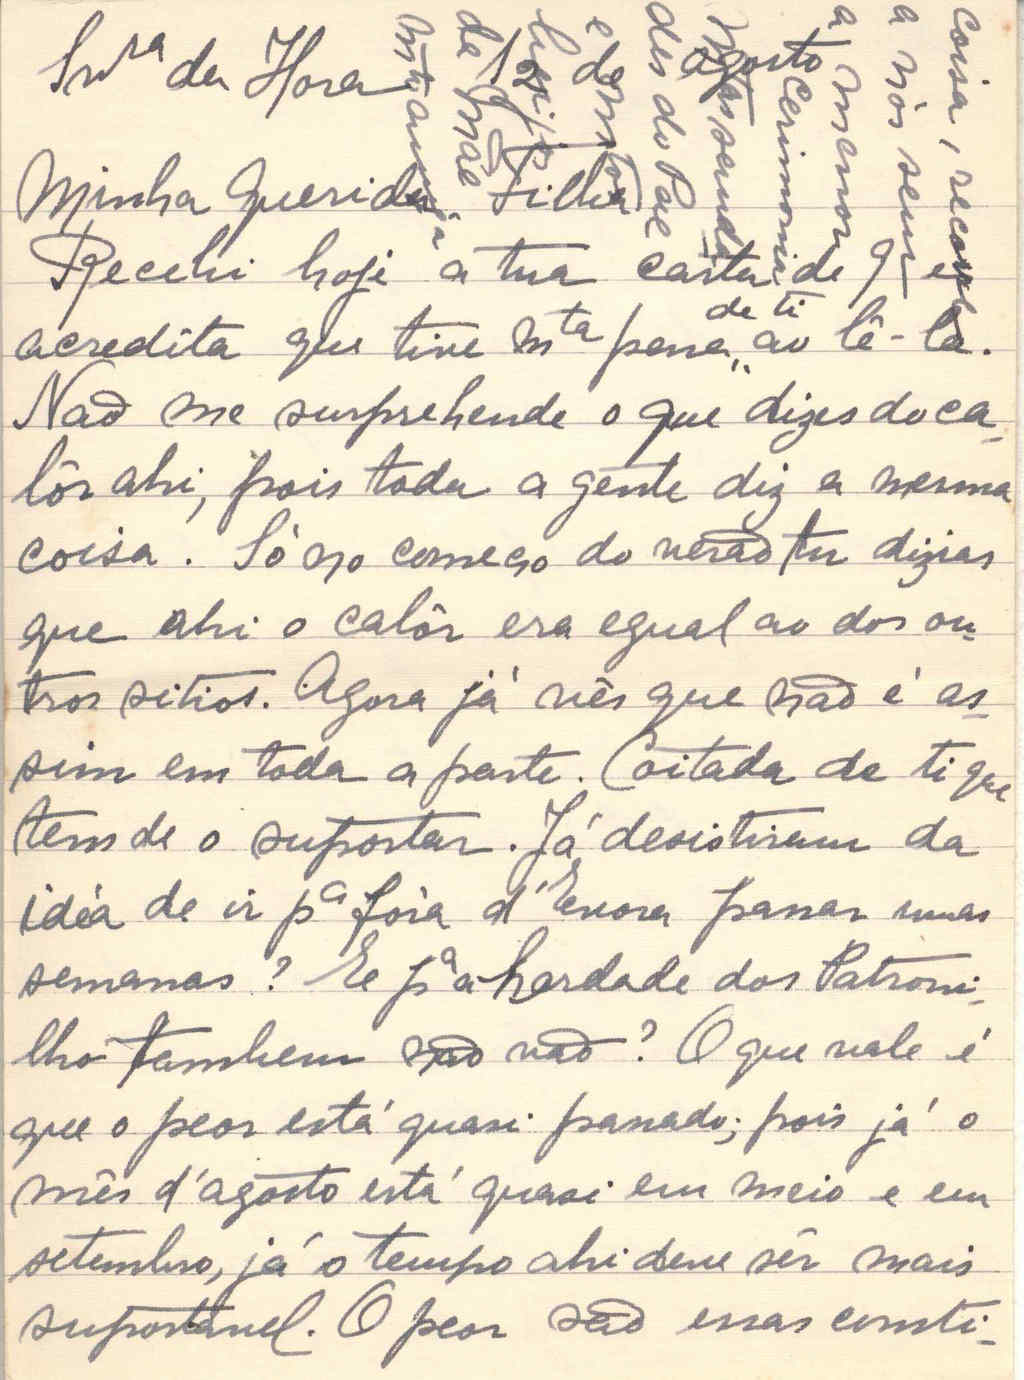 Snrª da Hora, de agosto
Minha Querida Filha
Recebi hoje a tua carta de 9, e
acredita que tive mta pena de ti ao lê-la.
Não me surprehende o que dizes do ca-
lôr ahi, pois toda a gente diz a mesma
coisa. Só no começo do verão tu dizias
que ahi o calôr era egual ao dos ou-
tros sitios. Agora já vês que não é as-
sim em toda a parte. Coitada de ti que
tens de o suportar. Já desistiram da
idéa de ir pª fóra d'Evora passar umas
semanas? E pª a herdade dos Patroni-
lho tambem não vão? O que vale é
que o peor está quasi passado; pois já o
mês d'agosto está quasi em meio e em
setembro, já o tempo ahi deve sêr mais
suportavel. O peor são essas consti-
coisa,
a nós sem
a menor
cerimonia
Mtas sauda
des do Pae
e
de Mãe
mto amiga